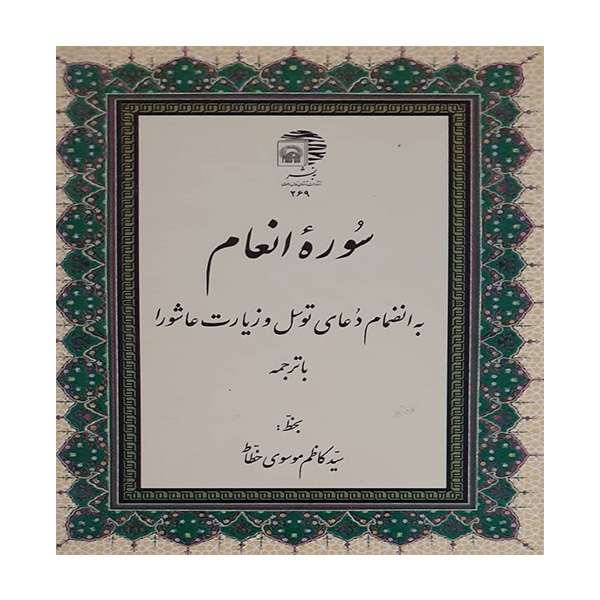 نشر
۲۶۹
سُورهٔ انعام
به انضمام دُعای توسل و زیارت عاشورا
با ترجمه
بخطّ:
سیّد کاظم موسوی خطّاط